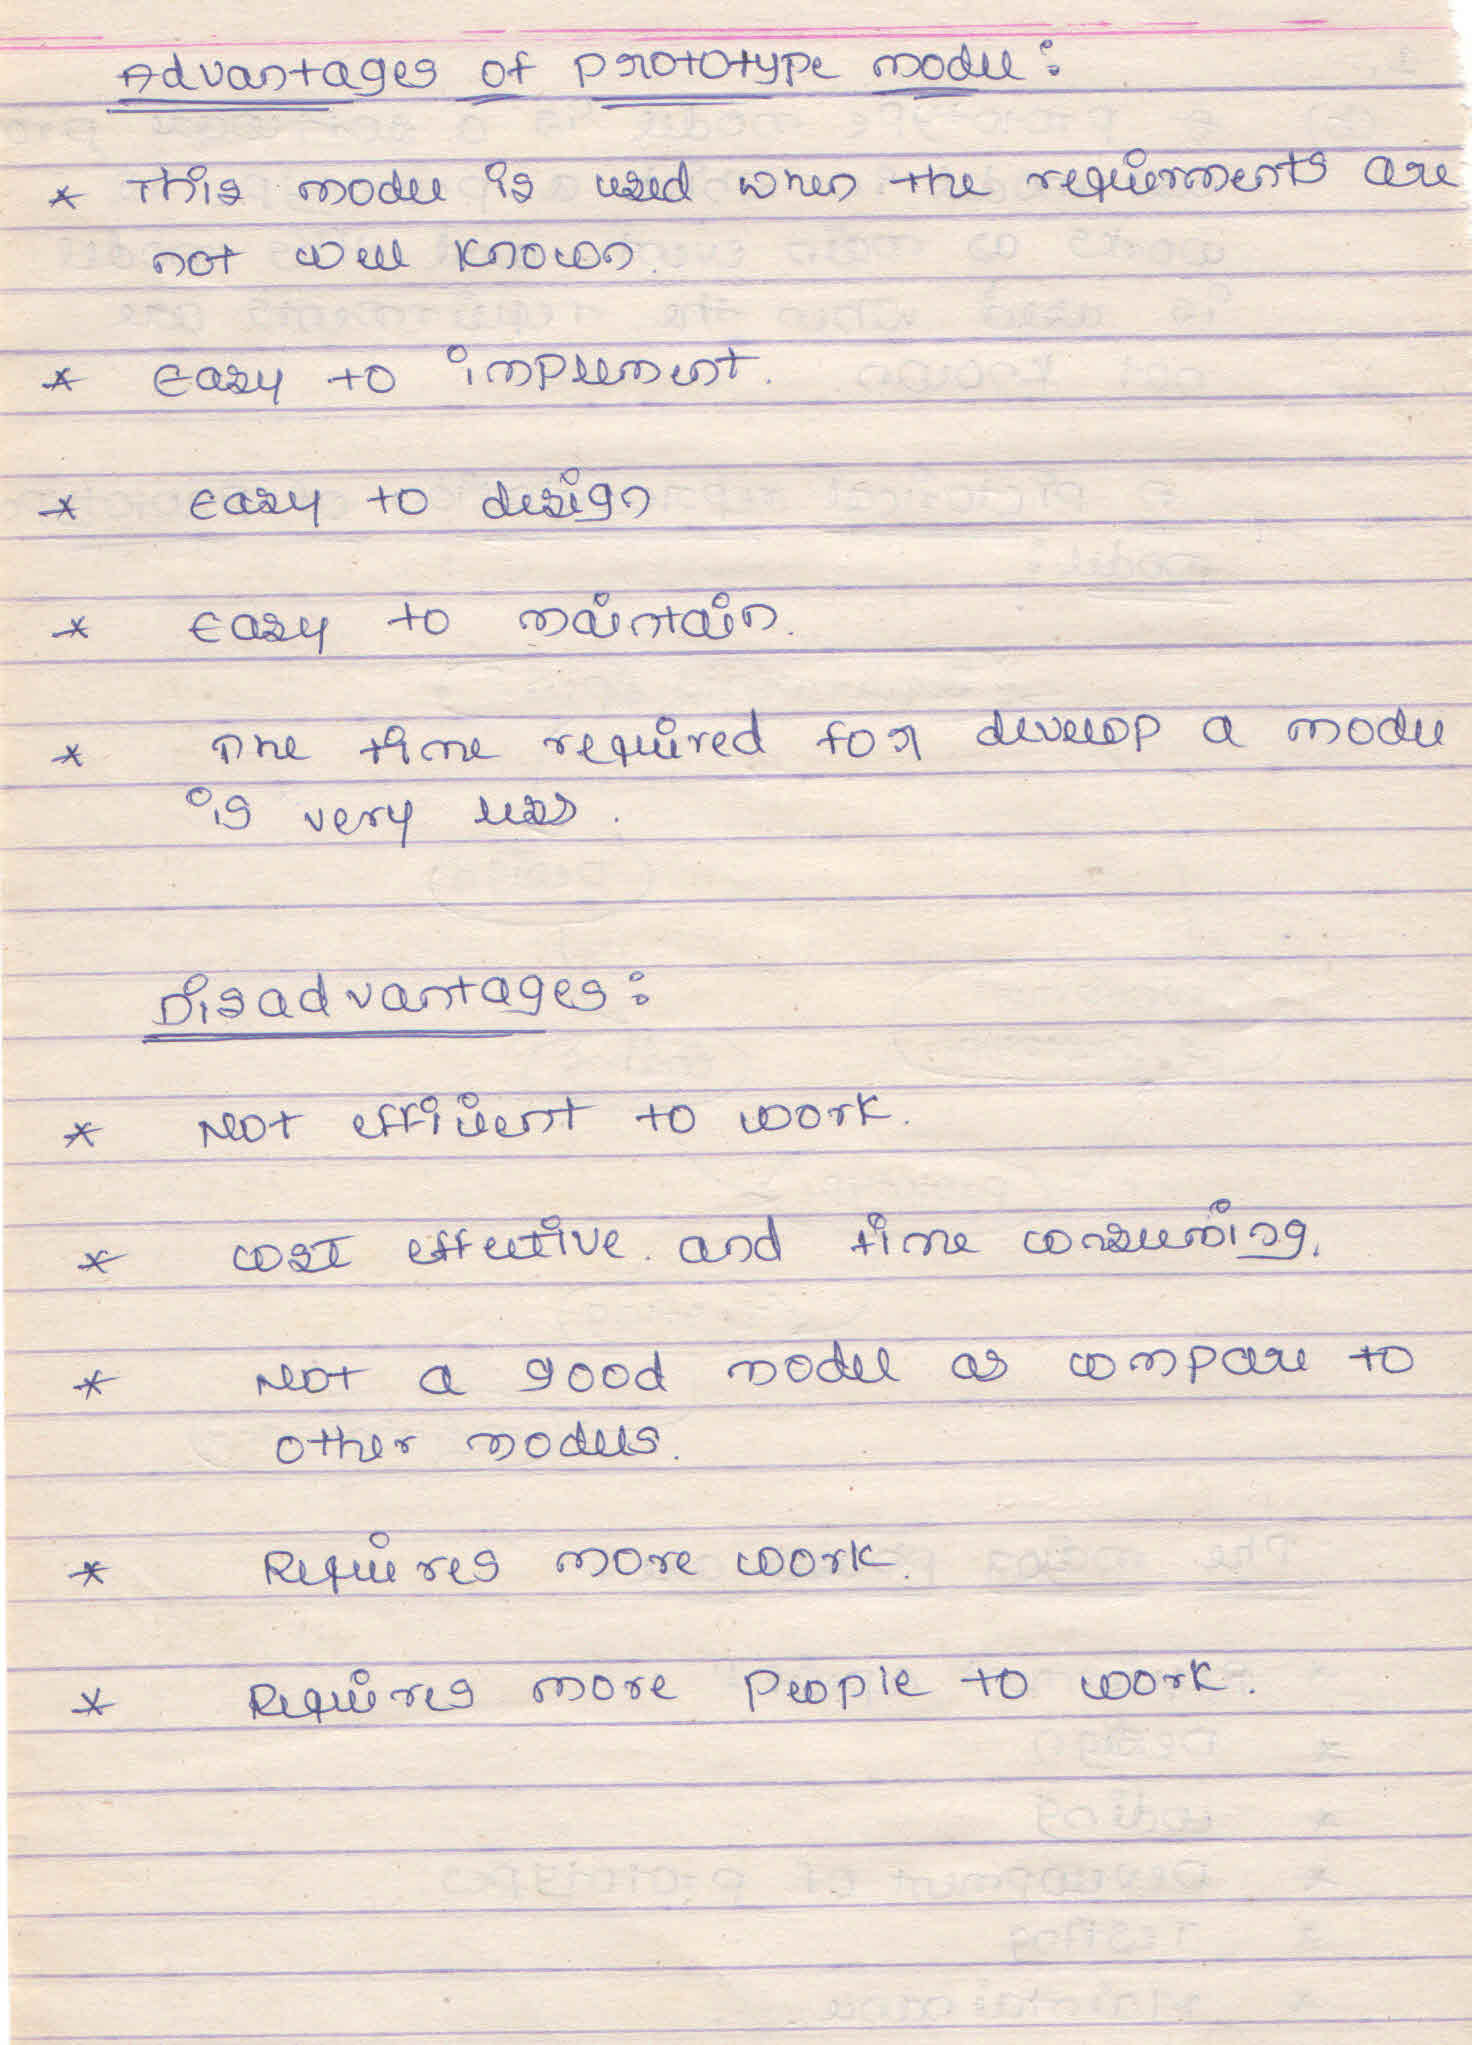 Advantages of prototype model:
* This model is used when the requierments are
not well known.
* Easy to implement.
* Easy to design
* Easy to maintain.
* The time required for develop a model
is very less.
Disadvantages:
* Not efficient to work.
* cost effective and time consuming.
* Not a good model as compare to
other models.
* Requires more work.
* Requires more people to work.